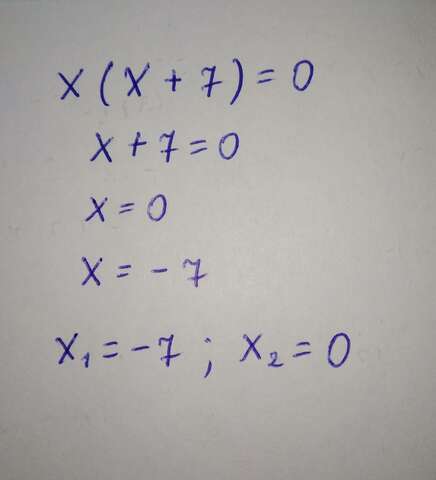 x(x+7)=0
x+7=0
x=0
x=-7
x₁=-7; x₂=0